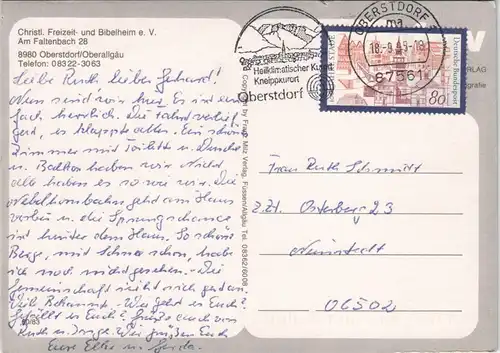 Christl. Freizeit- und Bibelheim e. V.
Am Faltenbach 28
8980 Oberstdorf/Oberallgäu
Telefon: 08322-3063
Liebe Ruth, lieber Gerhard!
Nun sind wir hier. Es ist ein-
fach herrlich. Die Fahrt verlief
gut, es klappte alles. Ein schönes
Zimmer mit Toilette u. Dusche
u. Balkon haben wir. Nicht
alle haben es so wie wir. Die
Nebelhornbahn geht am Haus
vorbei u. die Sprungschanze
ist hinter dem Haus. So schöne
Berge, mit Schnee schon, habe
ich noch nicht gesehen. Die
Gemeinschaft
Viel Bekannte. Wie geht es Euch?
Gefällt es Euch? Grüße auch von
Ruth u. Wir grüßen Euch
Eure Elke u. Gerda.
80/83
Copyright by Franz Milz Verlag, Füssen/Allgäu Tel. 08362/6008
Heilklimatischer Kurort
Kneippkurort
Oberstdorf
OBERSTDORF
ma
87561
Deutsche Bundespost
80
Frau Ruth Schmidt
z.Zt. Osterberg 23
Neinstedt
06502